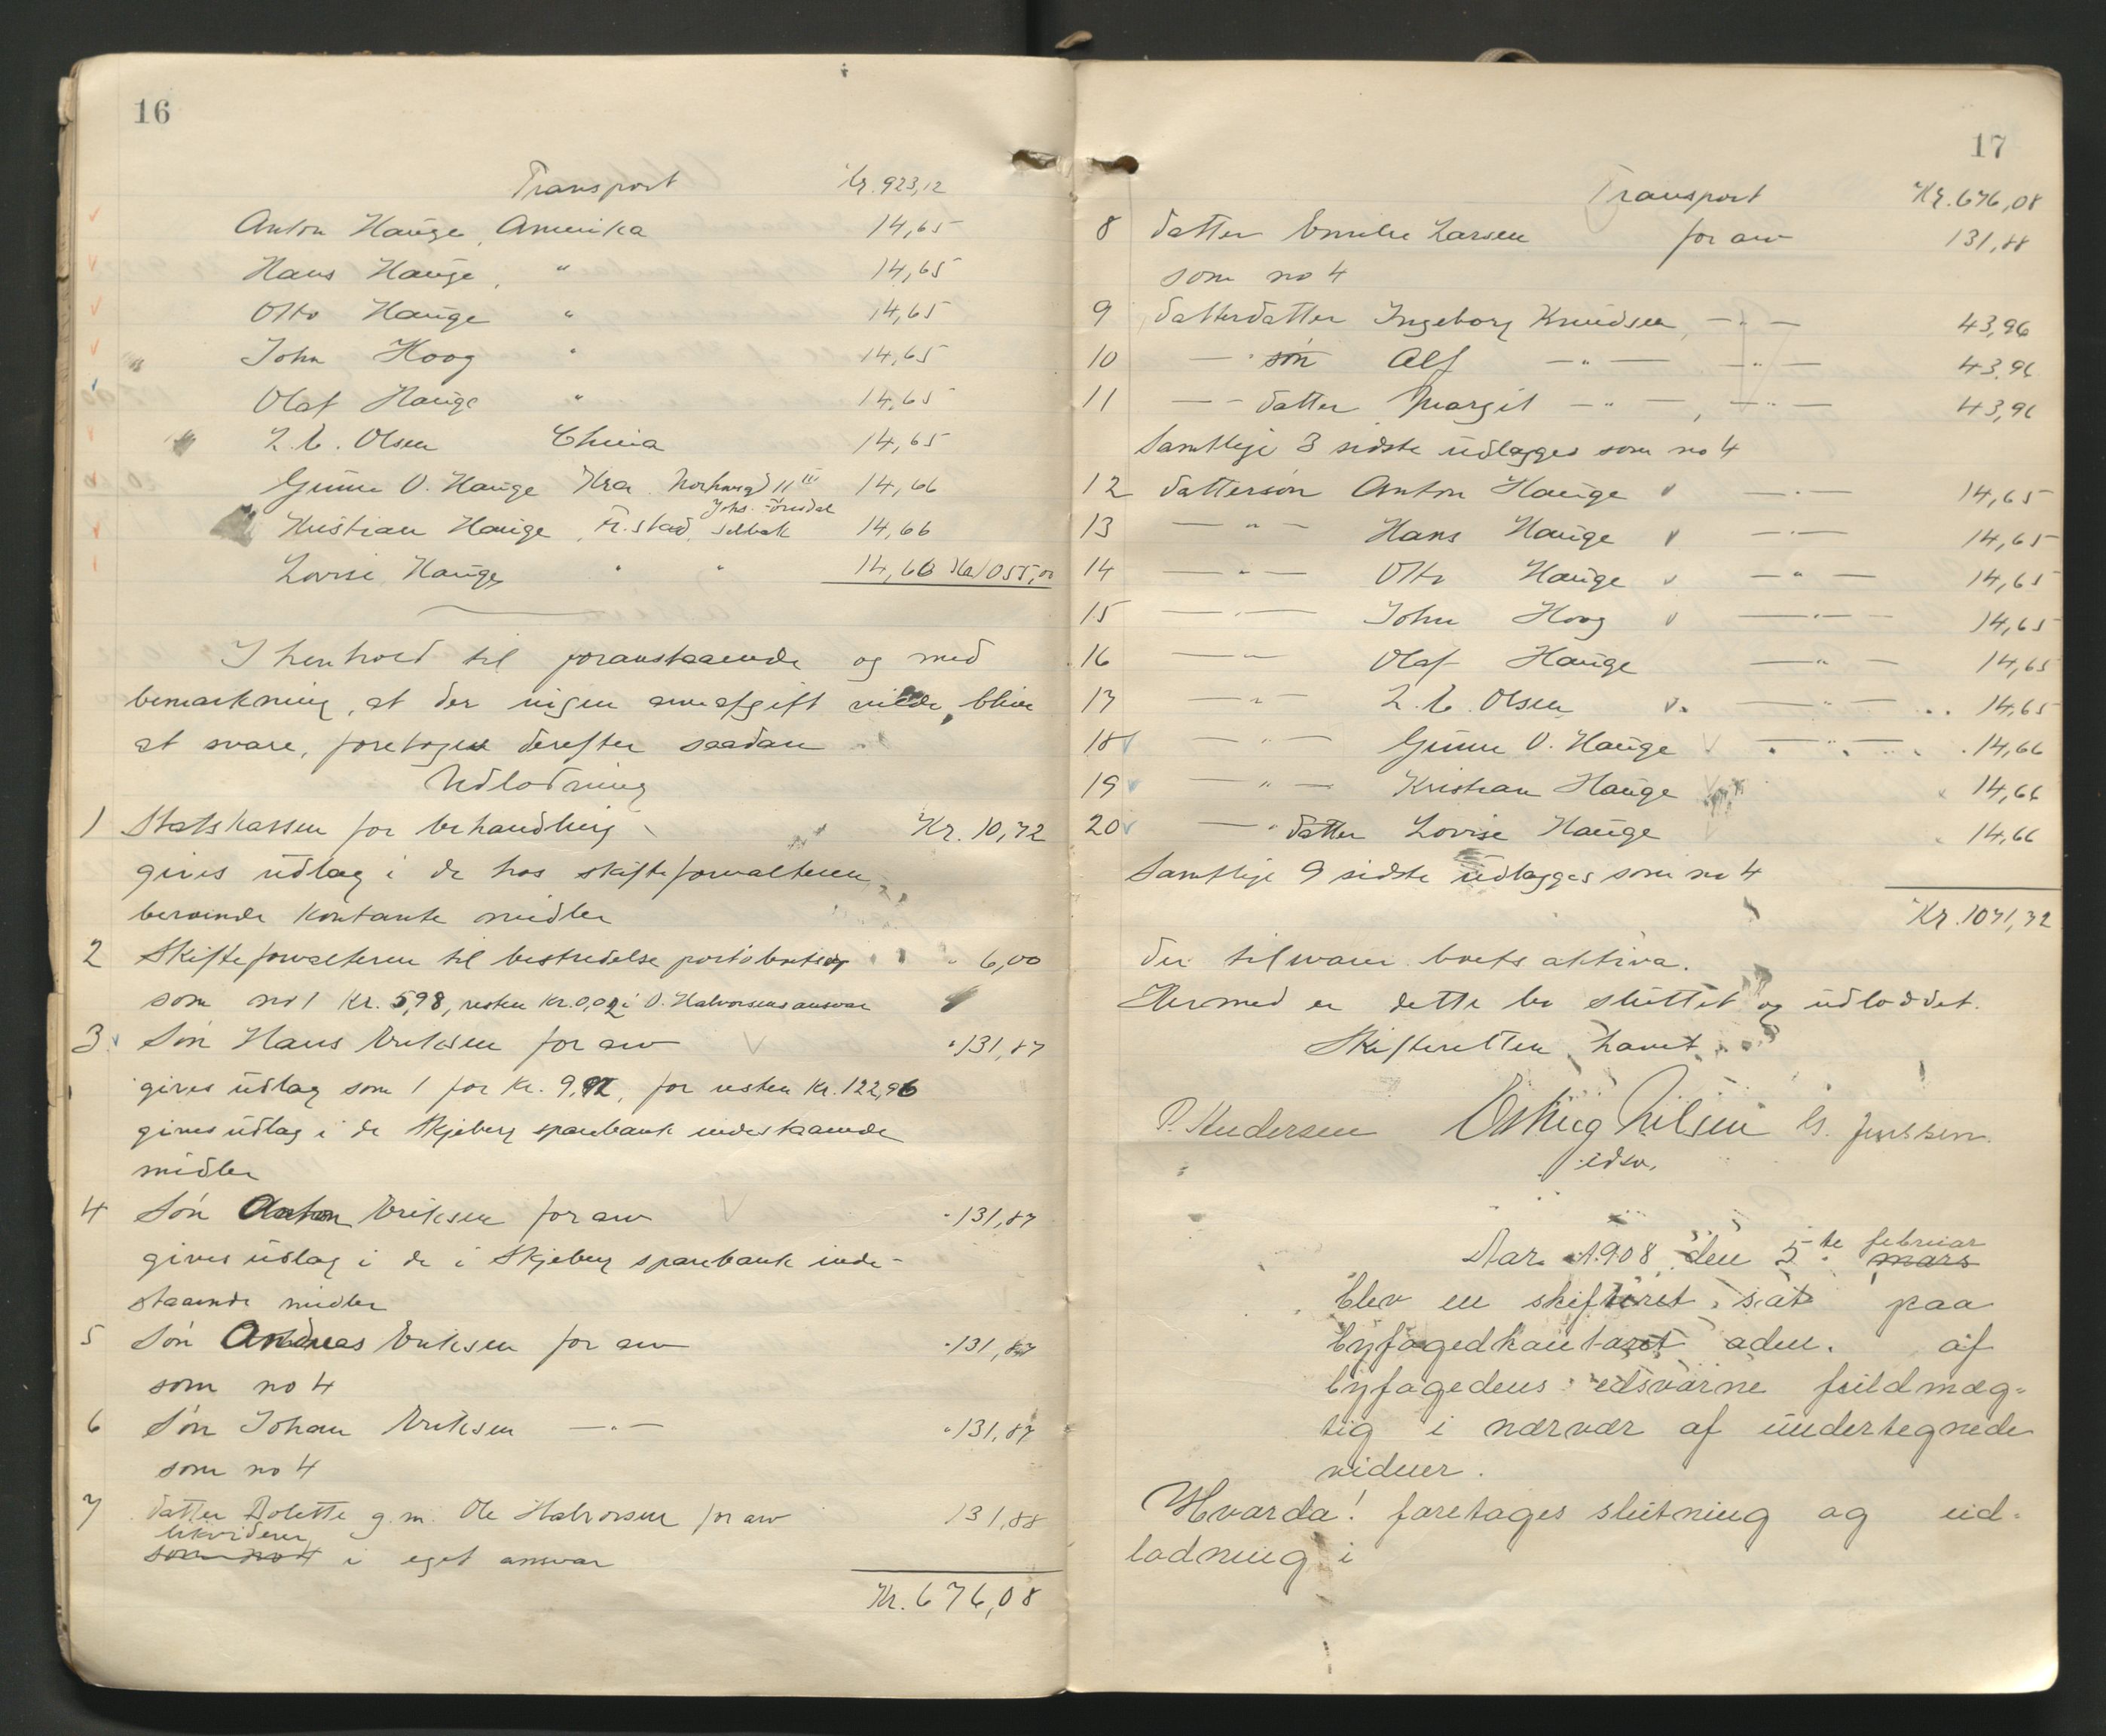 16
Transport Kr. 923,12
Anton Hauge, Amerika 14,65
Hans Hauge, " 14,65
Otto Hauge " 14,65
John Hoog " 14,65
Olaf Hauge " 14,65
L. C. Olsen China 14,65
Gunn O. Hauge Kra. 11 III 14,66
Kristian Hauge, Fr.stad, Selbak 14,66
Lovise Hauge " " 14,66 Kr. 1055,00
I henhold til foranstaaende og med
bemærkning, at der ingen arveafgift vilde blive
at svare, foretoges derefter saadan
Udlodning
1 Statskassen for behandling Kr. 10,72
gives udlag i de hos skifteforvalteren
beroende kontante midler
2 Skifteforvalteren til bestridelse portoutlæg " 6,00
som no 1 Kr. 5,98, resten Kr. 0,02 i O. Halvorsens ansvar
3 Søn Hans Eriksen for arv " 131,87
gives udlag som 1 for Kr. 9,92, for resten Kr. 122,96
gives udlag i de Skjeberg sparebank indestaaende
midler
4 Søn Anton Eriksen for arv " 131,87
gives udlag i de i Skjeberg sparebank inde-
staaende midler
5 Søn Andreas Eriksen for arv " 131,87
som no 4
6 Søn Johan Eriksen — " — " 131,87
som no 4
7 datter Bolette g. m. Ole Halvorsen for arv 131,88
likviderer
som no 4 i eget ansvar
Kr. 676,08
17
Transport Kr. 676,08
8 datter Emilie Larsen for arv 131,88
som no 4
9 datterdatter Ingeborg Knudsen, — " — 43,96
10 — " søn Alf — " — — " — 43,96
11 — — datter Margit — " —, — " — 43,96
Samtlige 3 sidste udlægges som no 4
12 dattersøn Anton Hauge — " — 14,65
13 — " — Hans Hauge — " — 14,65
14 — " — Otto Hauge — " — 14,65
15 — " — John Hoog — " — 14,65
16 — " — Olaf Hauge — " — 14,65
17 — " — L. C. Olsen — " — 14,65
18 — " — Gunn O. Hauge — " — 14,66
19 — " — Kristian Hauge 14,66
20 — " datter Lovise Hauge 14,66
Samtlige 9 sidste udlægges som no 4
Kr. 1071,72
der tilsvarer boets aktiva.
Hermed er dette bo sluttet og udloddet.
Skifteretten hævet
P. Andersen Nilsen Jenssen
edsv.
Aar 1908 den 5te februar
mars
blev en skifteret sat paa
byfogedkontoret adm. af
byfogedens edsvorne fuldmæg-
tig i nærvær af undertegnede
vidner.
Hvorda! foretages slutning og ud-
lodning i